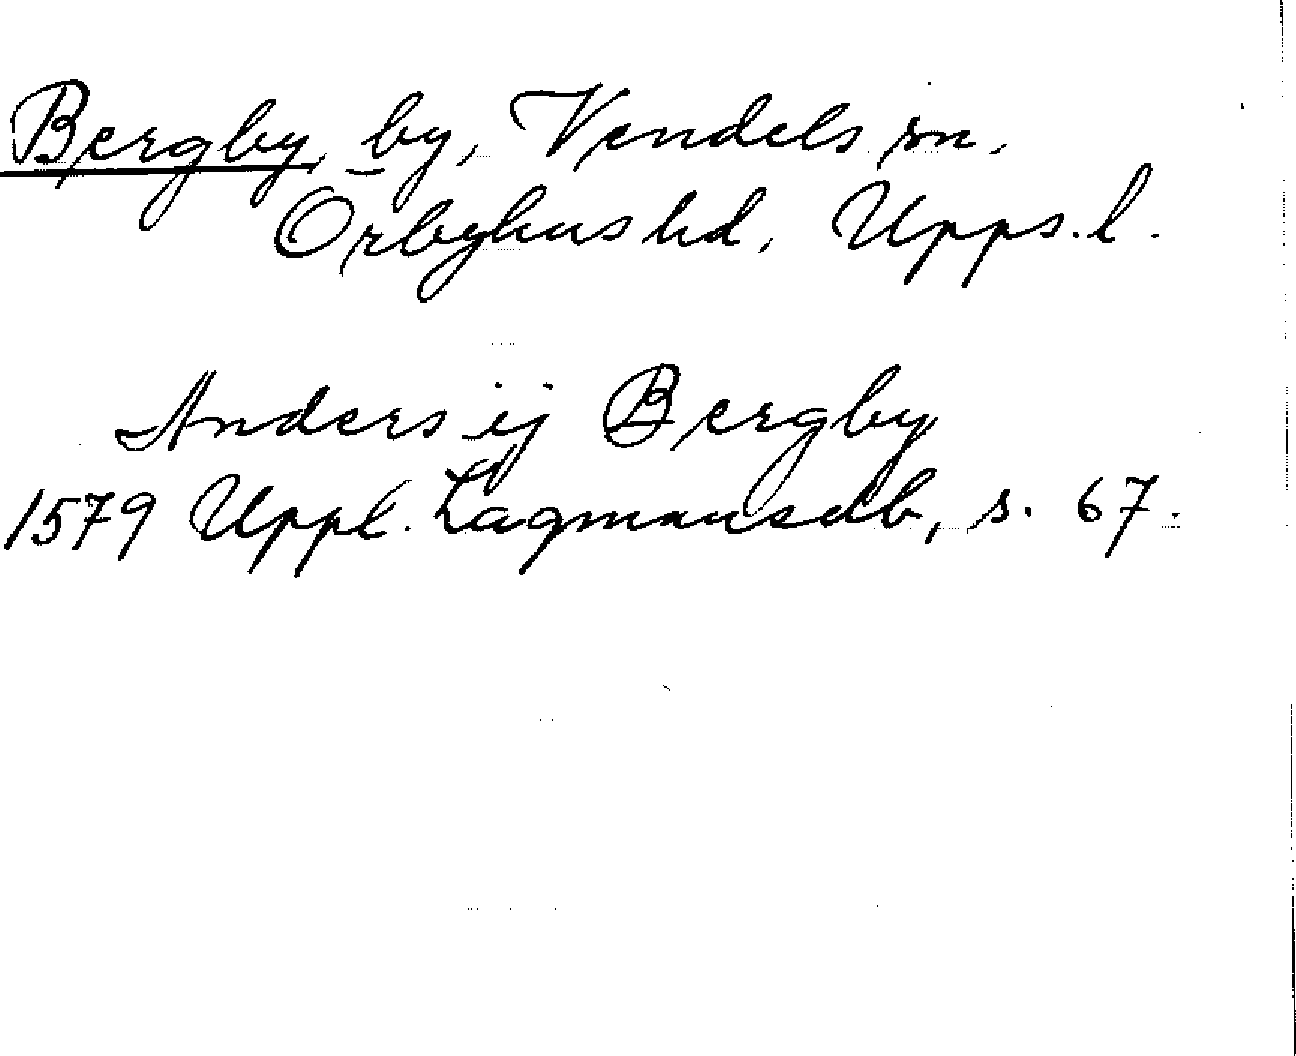 Bergby, by, Vendels sn.
Örbyhus hd, Upps. l.
Anders ij Bergby
1579 Uppl. Lagmansdb, s. 67.